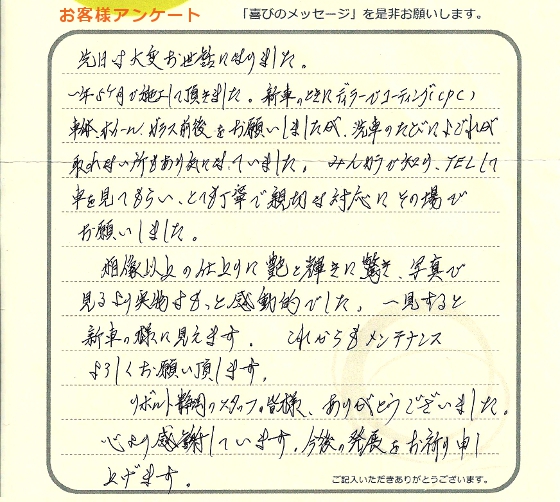 お客様アンケート 「喜びのメッセージ」を是非お願いします。
先日は大変お世話になりました。
一年5ヶ月が施工して頂きました。新車のときにディラーでコーティング(CPC)
車体、ホイール、ガラス前後をお願いしましたが、洗車のたびによごれが
取れない所もあり気になっていました。みんカラから知り、TELして
車を見てもらい、とても丁寧で親切な対応にその場で
お願いしました。
想像以上の仕上りに艶と輝きに驚き、写真で
見るより実物はもっと感動的でした。一見すると
新車の様に見えます。これからもメンテナンス
よろしくお願い頂します。
リボルト静岡のスタッフの皆様、ありがとうございました。
心より感謝しています。今後の発展をお祈り申し
上げます。
ご記入いただきありがとうございます。